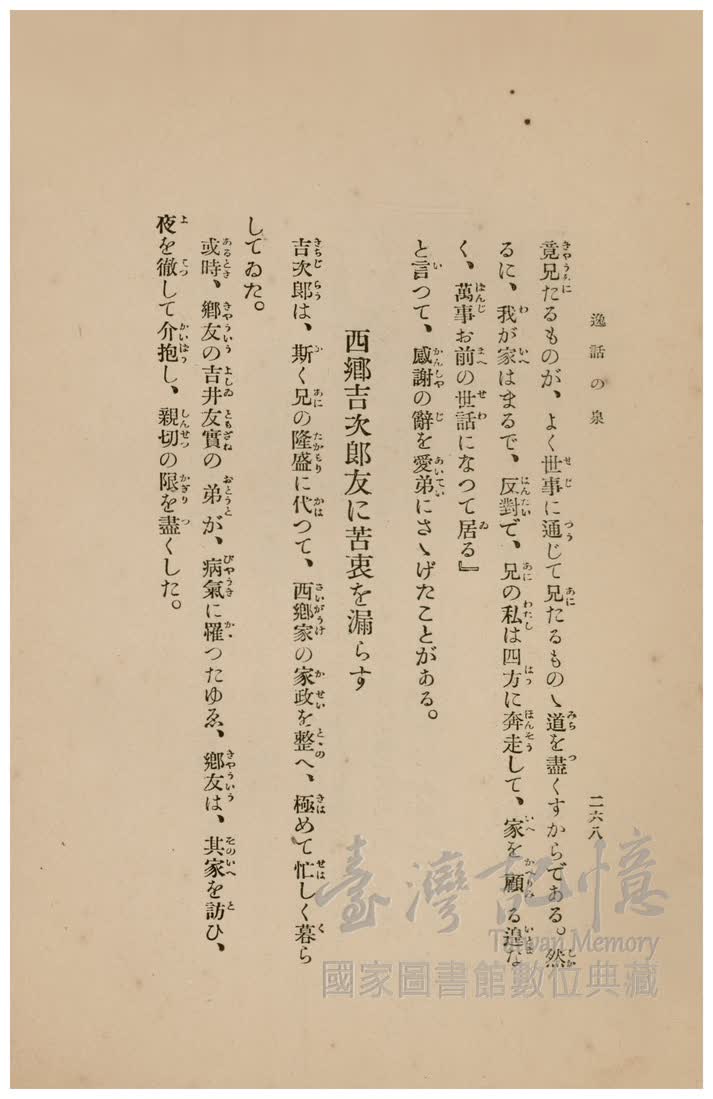 逸話の泉
二六八
竟兄たるものが、よく世事に通じて兄たるものゝ道を盡くすからである。然
るに、我が家はまるで、反對で、兄の私は四方に奔走して、家を顧る遑な
く、萬事お前の世話になつて居る』
と言つて、感謝の辭を愛弟にさゝげたことがある。
西鄕吉次郎友に苦衷を漏らす
吉次郎は、斯く兄の隆盛に代つて、西鄕家の家政を整へ、極めて忙しく暮ら
してゐた。
或時、鄕友の吉井友實の弟が、病氣に罹つたゆゑ、鄕友は、其家を訪ひ、
夜を徹して介抱し、親切の限を盡くした。
臺灣記憶
Taiwan Memory
國家圖書館數位典藏